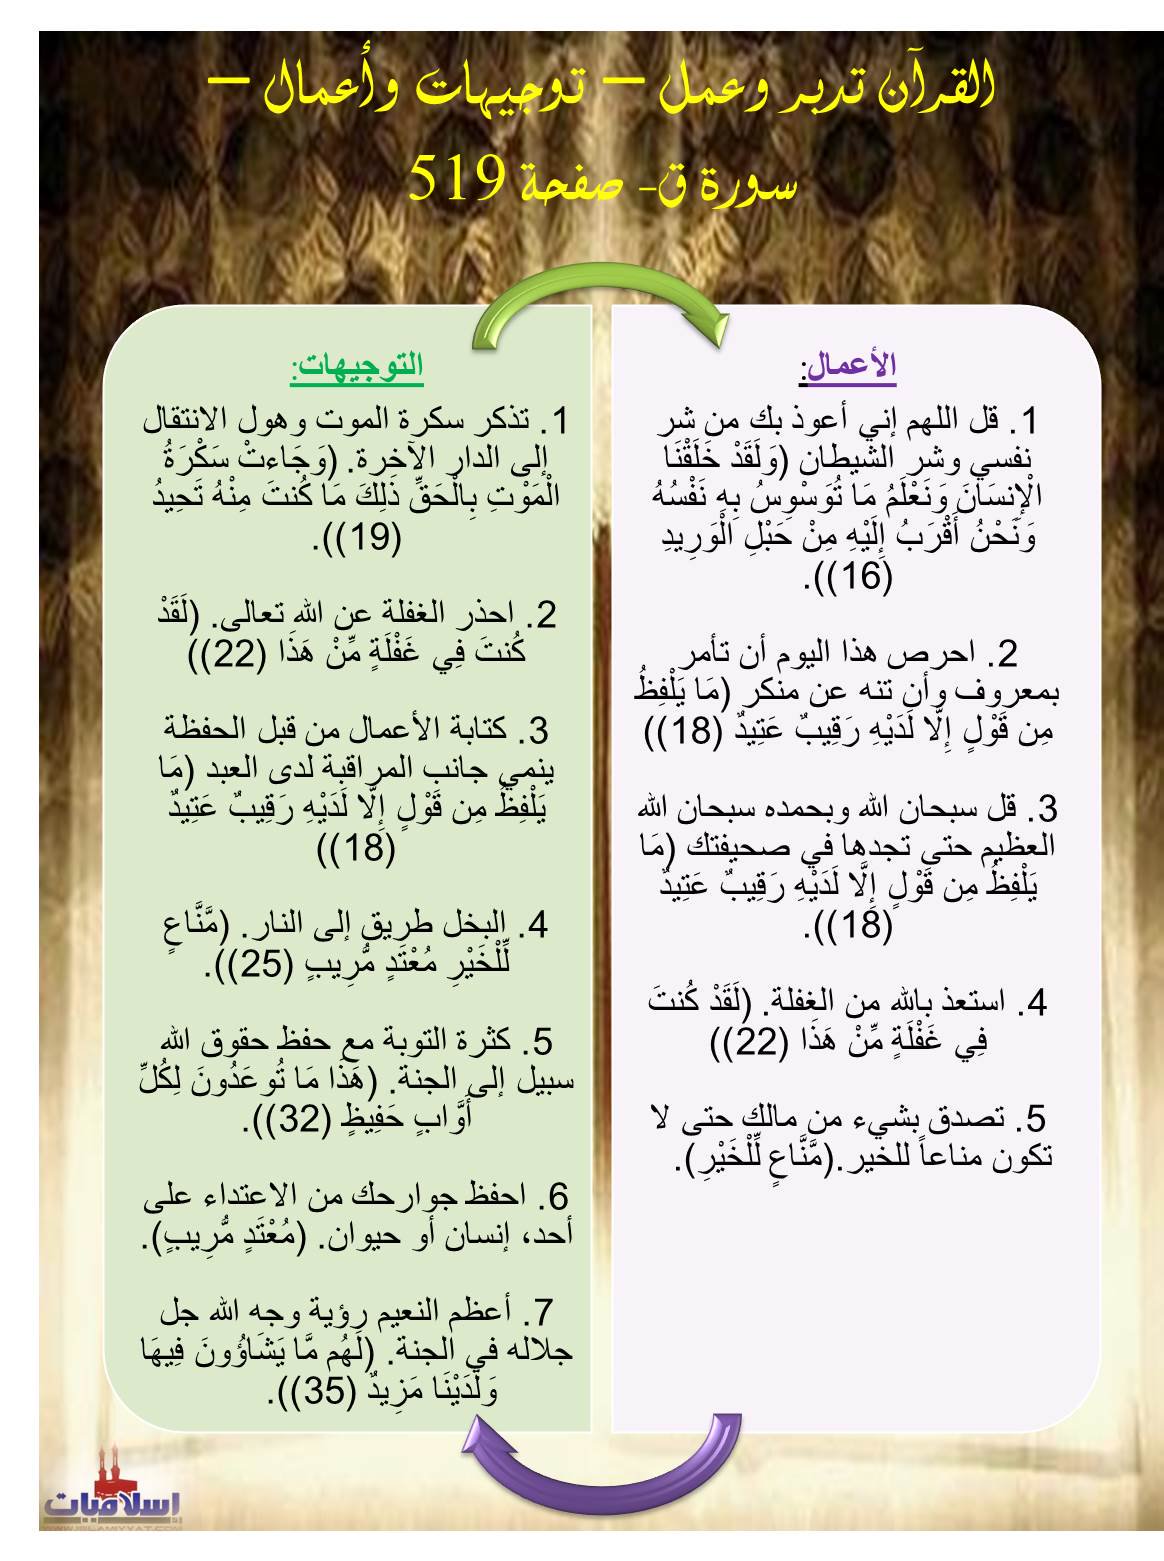 القرآن تدبر وعمل – توجيهات وأعمال –
سورة ق- صفحة 519
الأعمال:
1. قل اللهم إني أعوذ بك من شر
نفسي وشر الشيطان (وَلَقَدْ خَلَقْنَا
الْإِنسَانَ وَنَعْلَمُ مَا تُوَسْوِسُ بِهِ نَفْسُهُ
وَنَحْنُ أَقْرَبُ إِلَيْهِ مِنْ حَبْلِ الْوَرِيدِ
(16)).
2. احرص هذا اليوم أن تأمر
بمعروف وأن تنه عن منكر (مَا يَلْفِظُ
مِن قَوْلٍ إِلَّا لَدَيْهِ رَقِيبٌ عَتِيدٌ (18))
3. قل سبحان الله وبحمده سبحان الله
العظيم حتى تجدها في صحيفتك (مَا
يَلْفِظُ مِن قَوْلٍ إِلَّا لَدَيْهِ رَقِيبٌ عَتِيدٌ
(18)).
4. استعذ بالله من الغفلة. (لَقَدْ كُنتَ
فِي غَفْلَةٍ مِّنْ هَذَا (22))
5. تصدق بشيء من مالك حتى لا
تكون مناعاً للخير.(مَّنَّاعٍ لِّلْخَيْرِ).
التوجيهات:
1. تذكر سكرة الموت وهول الانتقال
إلى الدار الآخرة. (وَجَاءتْ سَكْرَةُ
الْمَوْتِ بِالْحَقِّ ذَلِكَ مَا كُنتَ مِنْهُ تَحِيدُ
(19)).
2. احذر الغفلة عن الله تعالى. (لَقَدْ
كُنتَ فِي غَفْلَةٍ مِّنْ هَذَا (22))
3. كتابة الأعمال من قبل الحفظة
ينمي جانب المراقبة لدى العبد (مَا
يَلْفِظُ مِن قَوْلٍ إِلَّا لَدَيْهِ رَقِيبٌ عَتِيدٌ
(18))
4. البخل طريق إلى النار. (مَّنَّاعٍ
لِّلْخَيْرِ مُعْتَدٍ مُّرِيبٍ (25)).
5. كثرة التوبة مع حفظ حقوق الله
سبيل إلى الجنة. (هَذَا مَا تُوعَدُونَ لِكُلِّ
أَوَّابٍ حَفِيظٍ (32)).
6. احفظ جوارحك من الاعتداء على
أحد، إنسان أو حيوان. (مُعْتَدٍ مُّرِيبٍ).
7. أعظم النعيم رؤية وجه الله جل
جلاله في الجنة. (لَهُم مَّا يَشَاؤُونَ فِيهَا
وَلَدَيْنَا مَزِيدٌ (35)).
إسلاميات
WWW.ISLAMIYYAT.COM